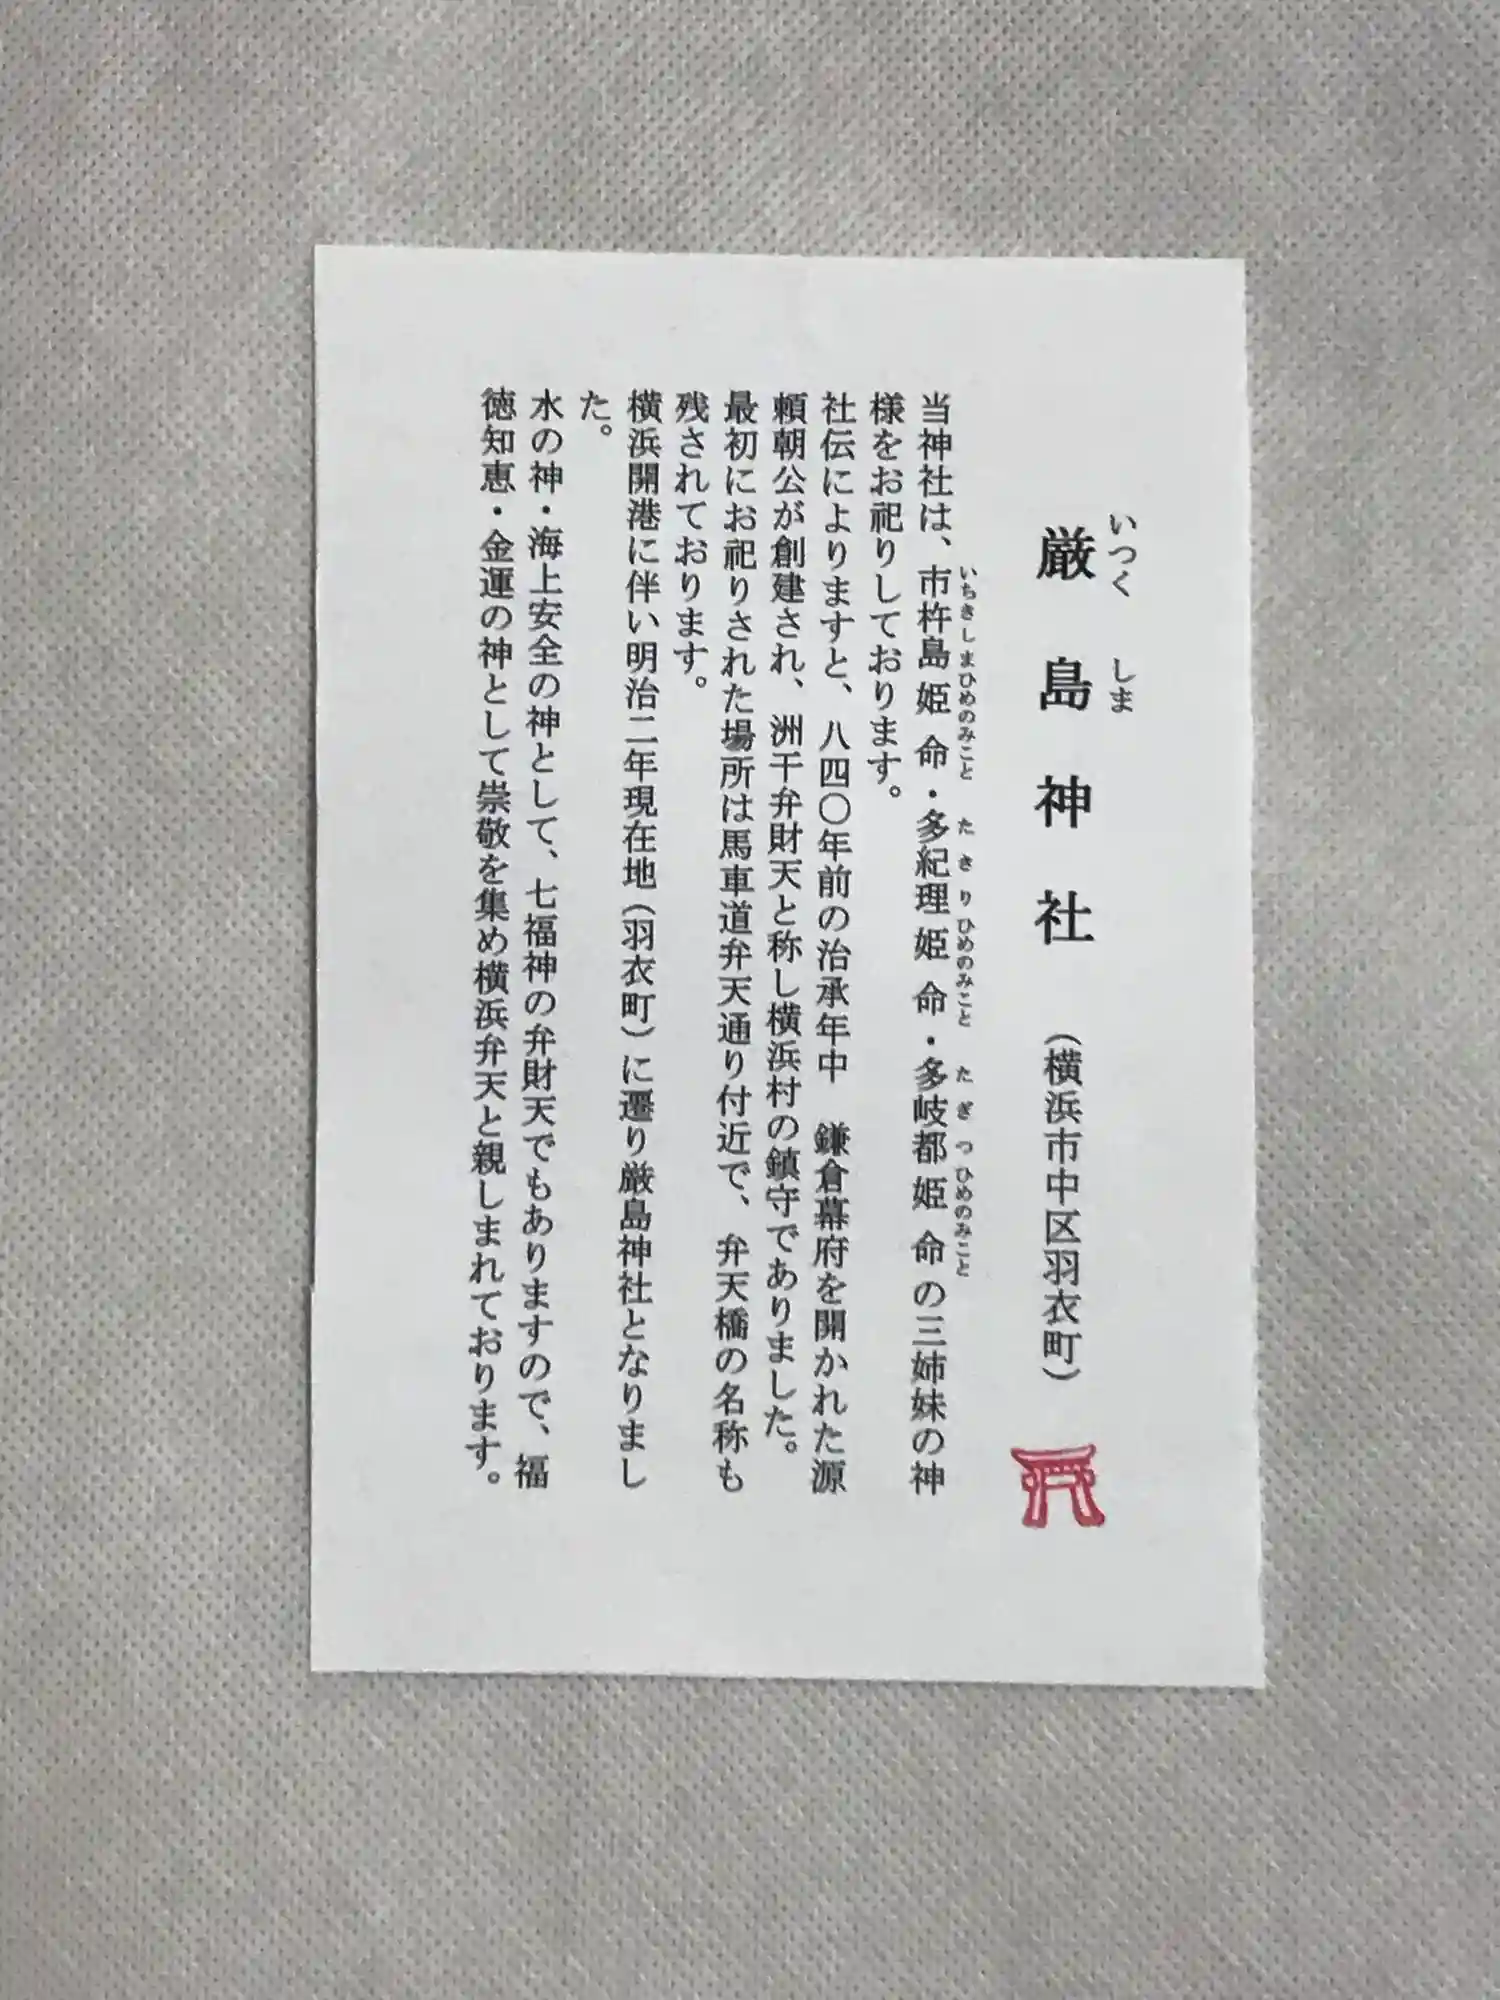 いつくしま
厳島神社（横浜市中区羽衣町）
いちきしまひめのみこと たきりひめのみこと たぎつひめのみこと
当神社は、市杵島姫命・多紀理姫命・多岐都姫命の三姉妹の神
様をお祀りしております。
社伝によりますと、八四〇年前の治承年中　鎌倉幕府を開かれた源
頼朝公が創建され、洲干弁財天と称し横浜村の鎮守でありました。
最初にお祀りされた場所は馬車道弁天通り付近で、弁天橋の名称も
残されております。
横浜開港に伴い明治二年現在地（羽衣町）に遷り厳島神社となりまし
た。
水の神・海上安全の神として、七福神の弁財天でもありますので、福
徳知恵・金運の神として崇敬を集め横浜弁天と親しまれております。